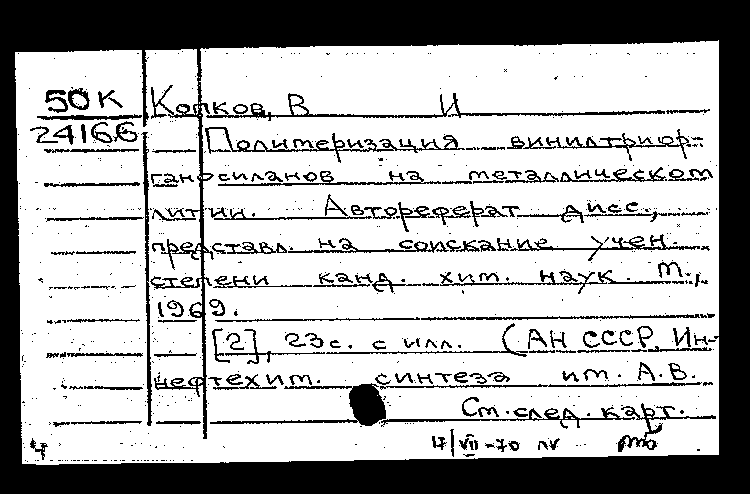 50К Копков, В И
24166 Полимеризация винилтриор-
ганосиланов на металлическом
литии. Автореферат дисс.,
представл. на соискание учен.
степени канд. хим. наук. М.,
1969.
[2], 23 с. с илл. (АН СССР. Ин-
нефтехим. синтеза им. А.В.
См. след. карт.
4 17/VII-70